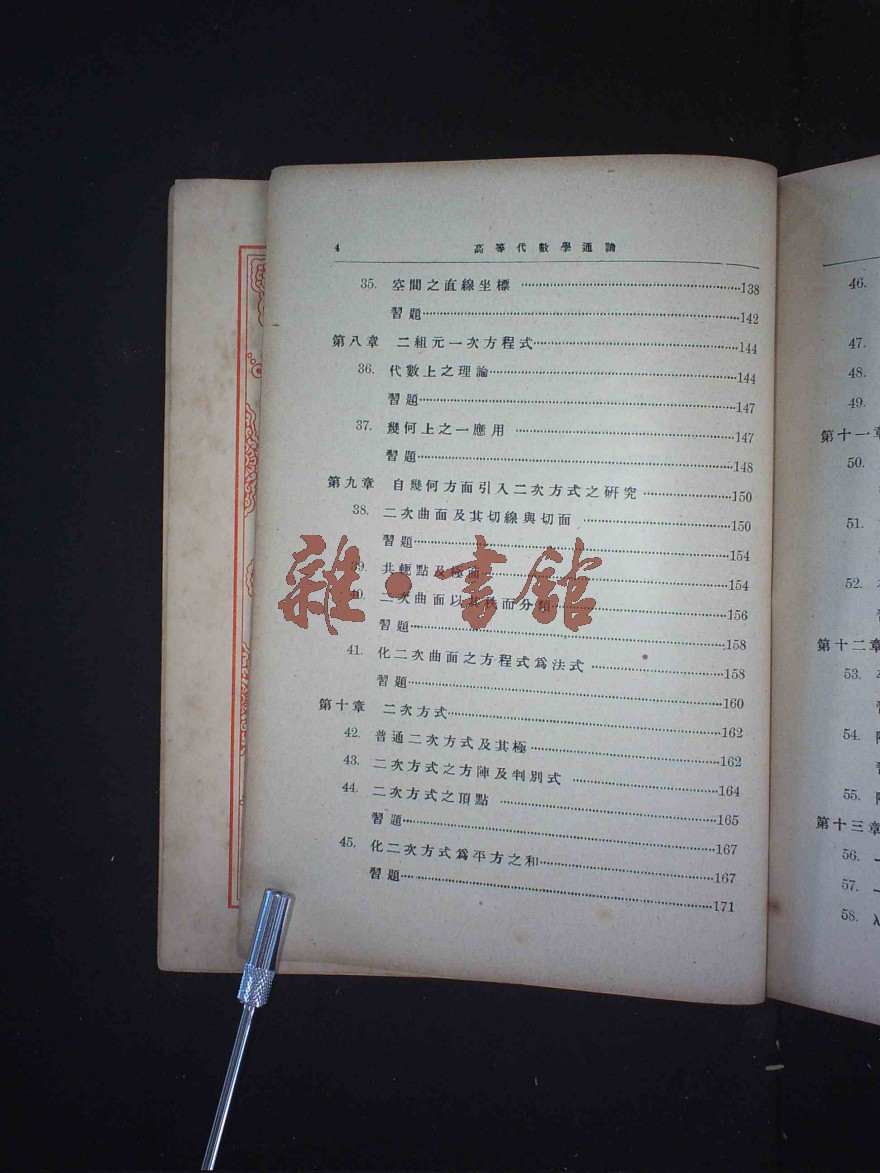 4 高等代數學通論
35. 空間之直線坐標 ……138
習題……142
第八章 二組元一次方程式……144
36. 代數上之理論……144
習題……147
37. 幾何上之一應用……147
習題……148
第九章 自幾何方面引入二次方式之硏究……150
38. 二次曲面及其切線與切面……150
習題……154
39. 共軛點及極面……154
40. 二次曲面以其秩而分類……156
習題……158
41. 化二次曲面之方程式爲法式……158
習題……160
第十章 二次方式……162
42. 普通二次方式及其極……162
43. 二次方式之方陣及判別式……164
44. 二次方式之頂點……165
習題……167
45. 化二次方式爲平方之和……167
習題……171
雜·書館
46.
47.
48.
49.
第十一章
50.
51.
52.
第十二章
53.
54.
55.
第十三章
56.
57.
58. λ